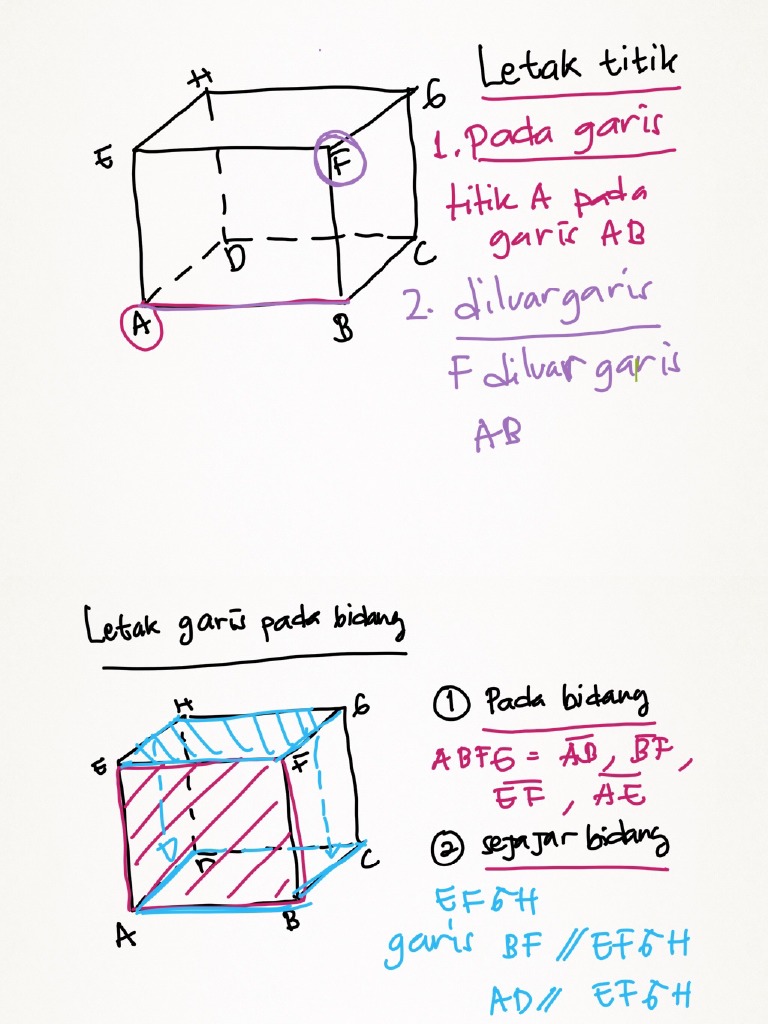 Letak titik
1. Pada garis
titik A pada
garis AB
2. diluar garis
F diluar garis
AB
H
G
E
F
D
C
A
B
Letak garis pada bidang
H
G
E
F
D
C
A
B
① Pada bidang
ABFE = A̅B̅, B̅F̅,
E̅F̅, A̅E̅
② sejajar bidang
EFGH
garis BF // EFGH
AD // EFGH